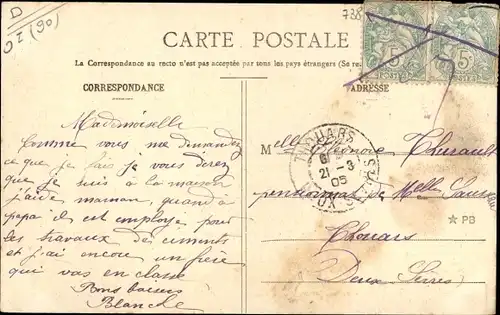 D
OI (90)
738
CARTE POSTALE
La Correspondance au recto n'est pas acceptée par tous les pays étrangers (Se
CORRESPONDANCE
ADRESSE
Mademoiselle
Comme vous me demandez
que je fais je vous direz
que je suis à la maison
j'aide maman, quand à
papa il est employe pour
les travaux des ciments
et j'ai encore un frère
qui vas en classe
Bons baisers
Blanche
THOUARS
21 - 3
05
5
POSTES
5
POSTES
Melle Thérault
pensionnat de Melle
Thouars
Deux Sèvres
★ PB